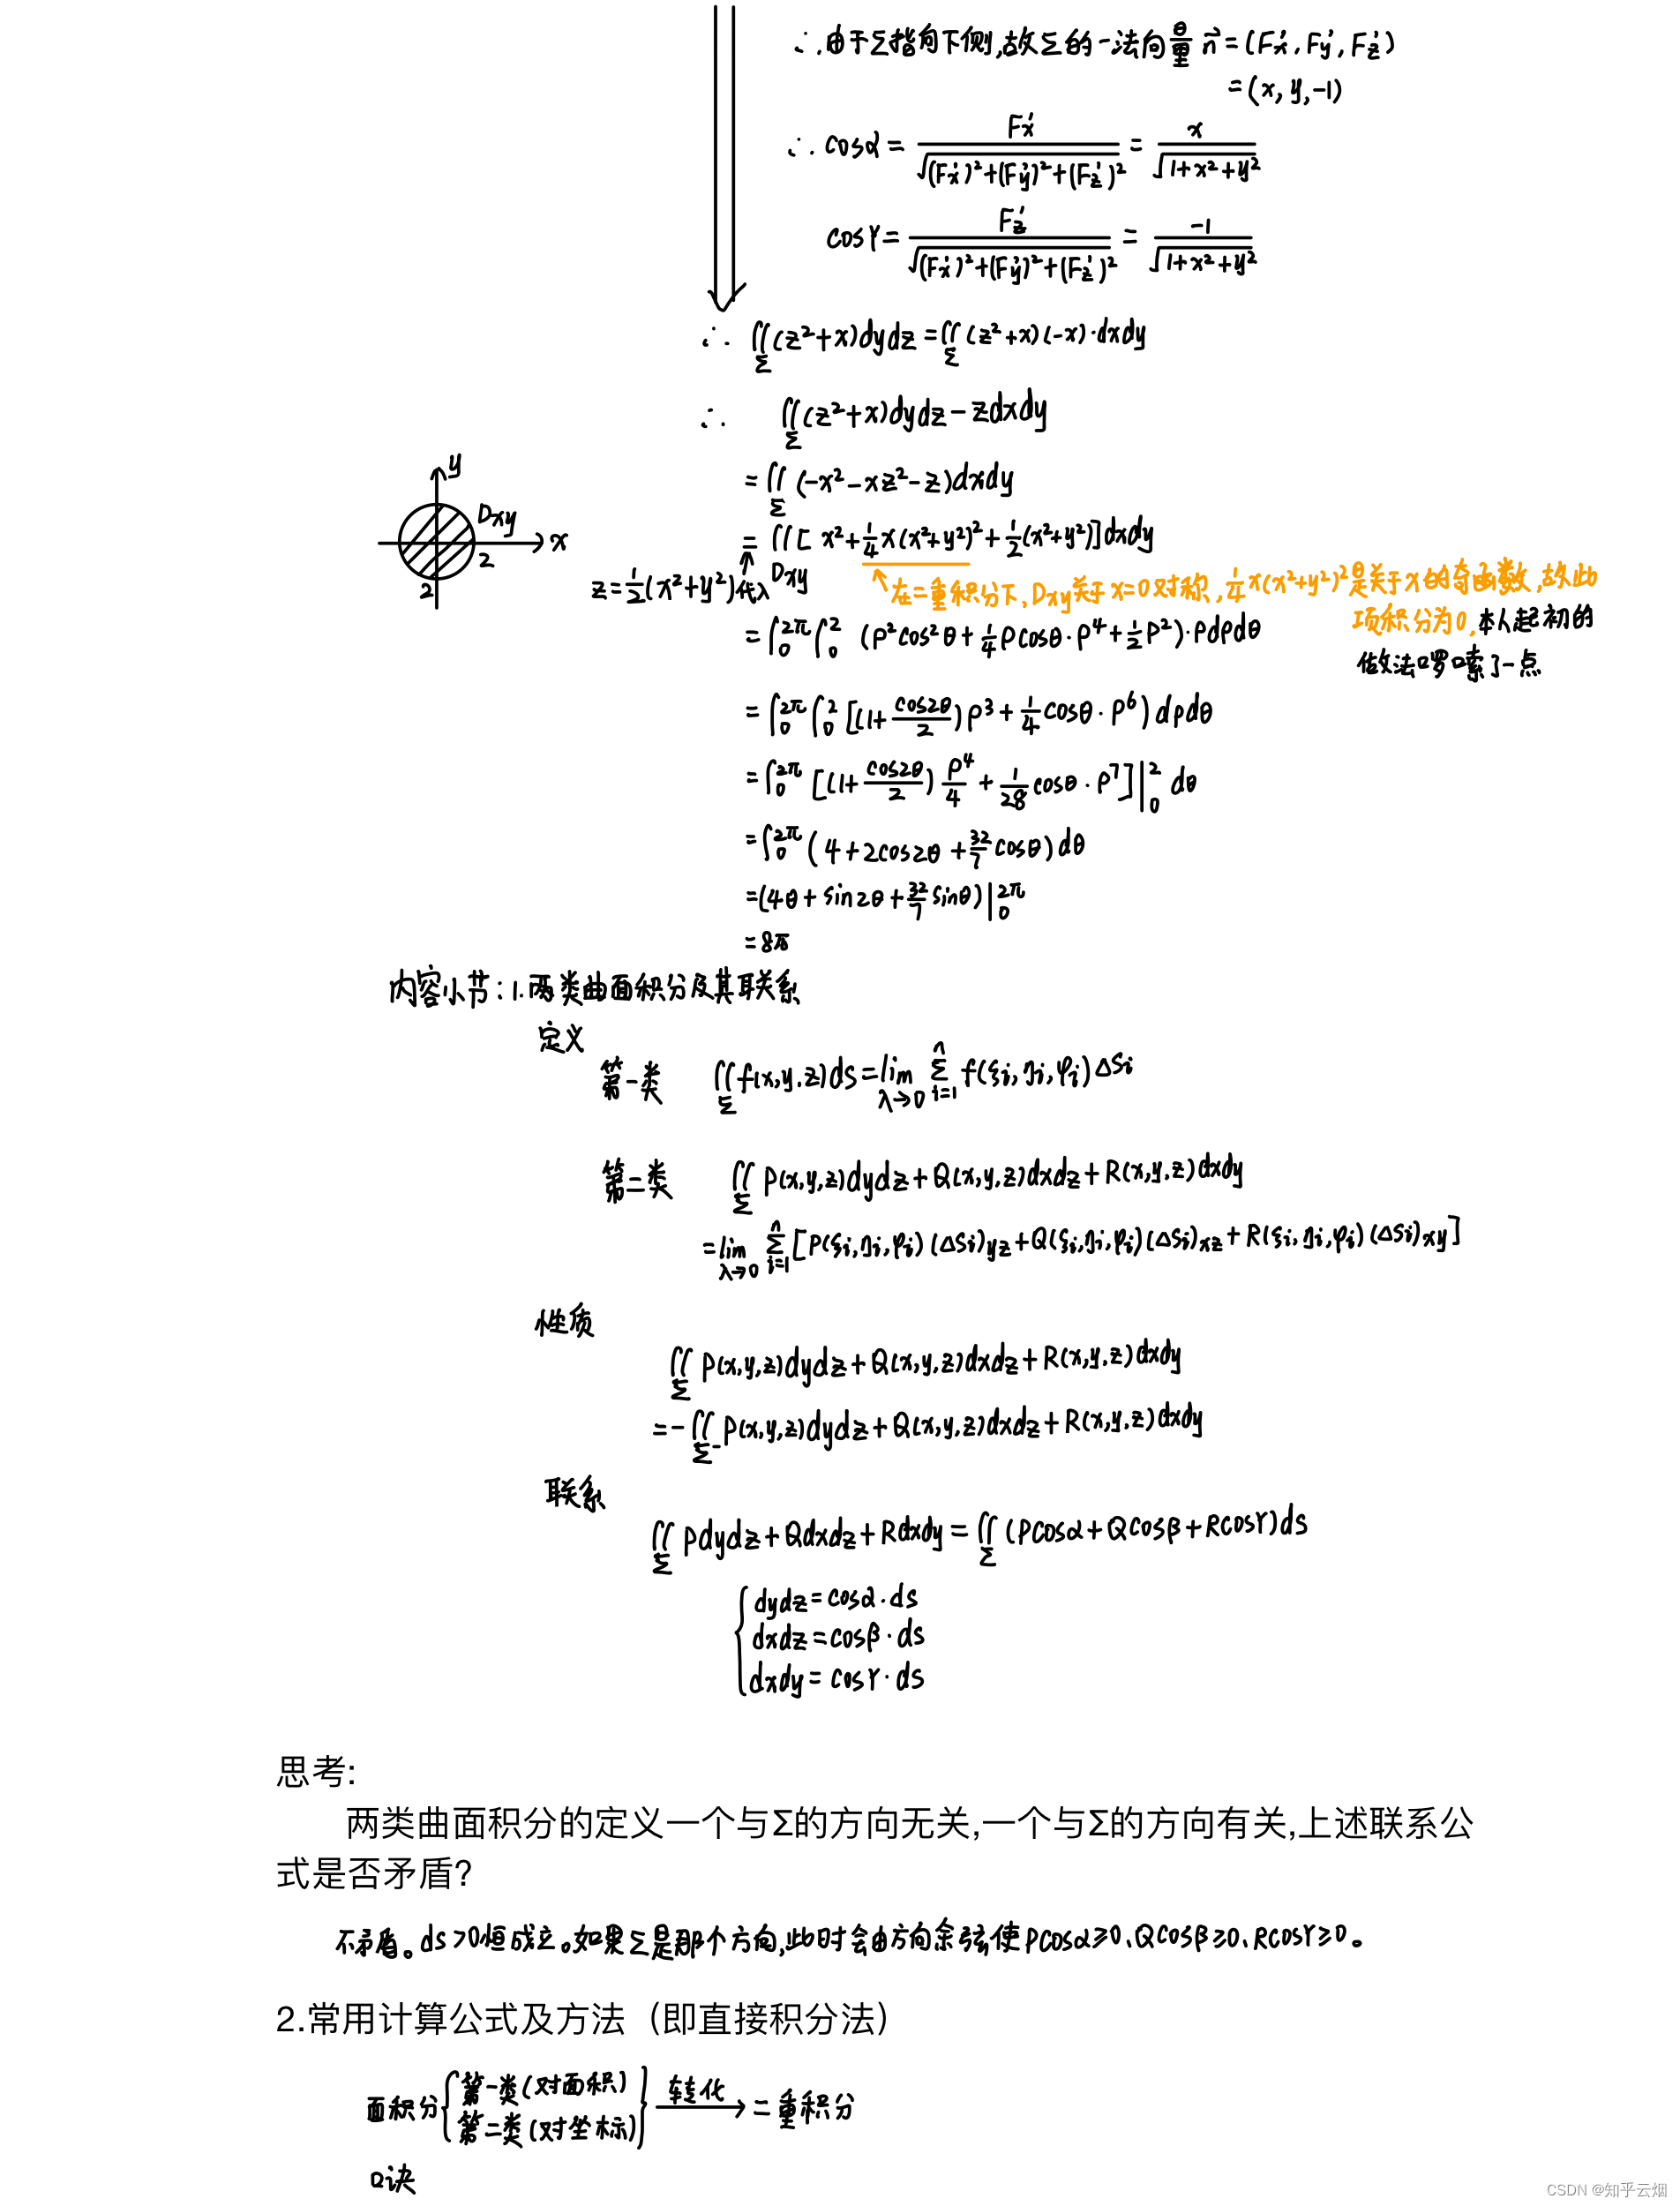 ∴.由于Σ指向下侧,故Σ的一法向量 n⃗ = (Fx′, Fy′, Fz′)
= (x, y, -1)
∴. cosα = Fx′/√((Fx′)²+(Fy′)²+(Fz′)²) = x/√(1+x²+y²)
cosγ = Fz′/√((Fx′)²+(Fy′)²+(Fz′)²) = -1/√(1+x²+y²)
∴. ∬Σ (z²+x)dydz = ∬Σ (z²+x)(-x)·dxdy
∴. ∬Σ (z²+x)dydz - zdxdy
= ∬Σ (-x²-xz²-z)dxdy
y
Dxy
x
2
2
= ∬Dxy [x²+1/4 x(x²+y²)²+1/2(x²+y²)]dxdy
z=1/2(x²+y²)代入
在二重积分下、Dxy关于x=0对称, 1/4 x(x²+y²)²是关于x的奇函数,故此
项积分为0,本人起初的
做法啰嗦了一点
= ∫₀^2π ∫₀^2 (ρ²cos²θ + 1/4 ρcosθ·ρ⁴ + 1/2 ρ²)·ρdρdθ
= ∫₀^2π ∫₀^2 [(1+cos2θ/2)ρ³ + 1/4 cosθ·ρ⁶) dρdθ
= ∫₀^2π [(1+cos2θ/2) ρ⁴/4 + 1/28 cosθ·ρ⁷]|₀^2 dθ
= ∫₀^2π (4+2cos2θ+32/7 cosθ) dθ
=(4θ+sin2θ+32/7 sinθ)|₀^2π
= 8π
内容小节:1.两类曲面积分及其联系
定义
第一类 ∬Σ f(x,y,z)ds = lim λ→0 Σ i=1 n f(ξi,ηi,φi)ΔSi
第二类 ∬Σ P(x,y,z)dydz+Q(x,y,z)dxdz+R(x,y,z)dxdy
= lim λ→0 Σ i=1 n [P(ξi,ηi,φi)(ΔSi)yz+Q(ξi,ηi,φi)(ΔSi)xz+R(ξi,ηi,φi)(ΔSi)xy]
性质
∬Σ P(x,y,z)dydz+Q(x,y,z)dxdz+R(x,y,z)dxdy
=-∬Σ⁻ P(x,y,z)dydz+Q(x,y,z)dxdz+R(x,y,z)dxdy
联系
∬Σ Pdydz+Qdxdz+Rdxdy = ∬Σ (Pcosα+Qcosβ+Rcosγ)ds
dydz=cosα·ds
dxdz=cosβ·ds
dxdy=cosγ·ds
思考:
两类曲面积分的定义一个与Σ的方向无关,一个与Σ的方向有关,上述联系公
式是否矛盾?
不矛盾。ds>0恒成立。如果Σ是那个方向,此时会由方向余弦使Pcosα≥0、Qcosβ≥0、Rcosγ≥0。
2.常用计算公式及方法（即直接积分法）
面积分{第一类(对面积) 第二类(对坐标)} 转化→ 二重积分
口诀
CSDN @知乎云烟